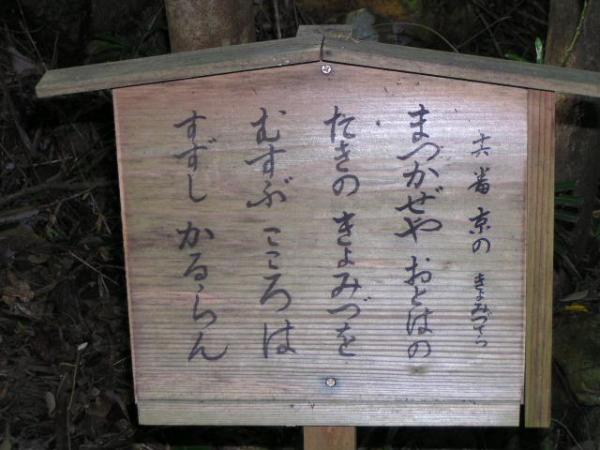 十六番 京の きよみづでら
まつかぜや おとはの
たきの きよみづを
むすぶ こころは
すずし かるゝらん